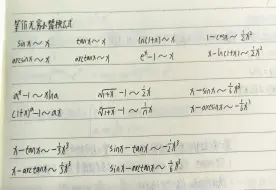 等价无穷小替换公式
sinx~x tanx~x ln(1+x)~x 1-cosx~½x²
arcsinx~x arctanx~x eˣ-1~x x-ln(1+x)~½x²
aˣ-1~xlna √(1+x)-1~½x x-sinx~⅙x³
(1+x)ᵃ-1~ax ⁿ√(1+x)-1~(1/n)x x-arcsinx~-⅙x³
x-tanx~-⅓x³ sinx-tanx~-½x³
x-arctanx~⅓x³ sinx-arctanx~⅙x³